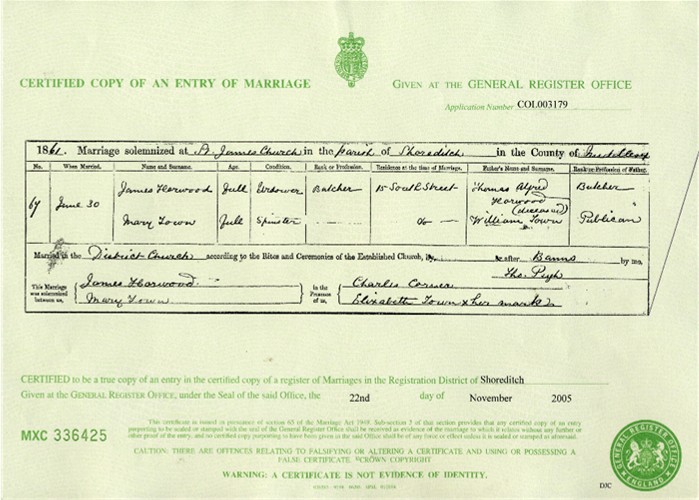 CERTIFIED COPY OF AN ENTRY OF MARRIAGE
GIVEN AT THE GENERAL REGISTER OFFICE
Application Number COL003179
1861. Marriage solemnized at St. James Church in the Parish of Shoreditch in the County of Middlesex
No. When Married. Name and Surname. Age. Condition. Rank or Profession. Residence at the time of Marriage. Father's Name and Surname. Rank or Profession of Father.
67 June 30 James Horwood Full Widower Butcher 15 South Street Thomas Alfred Horwood (deceased) Butcher
Mary Town Full Spinster do William Town Publican
Married in the District Church according to the Rites and Ceremonies of the Established Church, by or after Banns by me,
Tho. Pugh
This Marriage was solemnized between us,
James Horwood
Mary Town
In the Presence of us,
Charles
Elizabeth Town x her mark
CERTIFIED to be a true copy of an entry in the certified copy of a register of Marriages in the Registration District of Shoreditch
Given at the GENERAL REGISTER OFFICE, under the Seal of the said Office, the 22nd day of November 2005
MXC 336425
This certificate is issued in pursuance of section 65 of the Marriage Act 1949. Sub-section 3 of that section provides that any certified copy of an entry
purporting to be sealed or stamped with the seal of the General Register Office shall be received as evidence of the marriage to which it relates without any further or
other proof of the entry, and no certified copy purporting to have been given in the said Office shall be of any force or effect unless it is sealed or stamped as aforesaid.
CAUTION: THERE ARE OFFENCES RELATING TO FALSIFYING OR ALTERING A CERTIFICATE AND USING OR POSSESSING A
FALSE CERTIFICATE. ©CROWN COPYRIGHT
WARNING: A CERTIFICATE IS NOT EVIDENCE OF IDENTITY.
GENERAL REGISTER OFFICE
ENGLAND
DJC